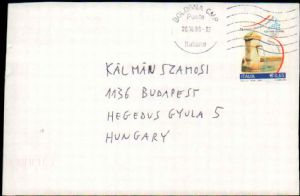 BOLOGNA CMP
Poste
Italiane
ITALIA €0,65
KÁLMÁN SZAMOSI
1136 BUDAPEST
HEGEDUS GYULA 5
HUNGARY